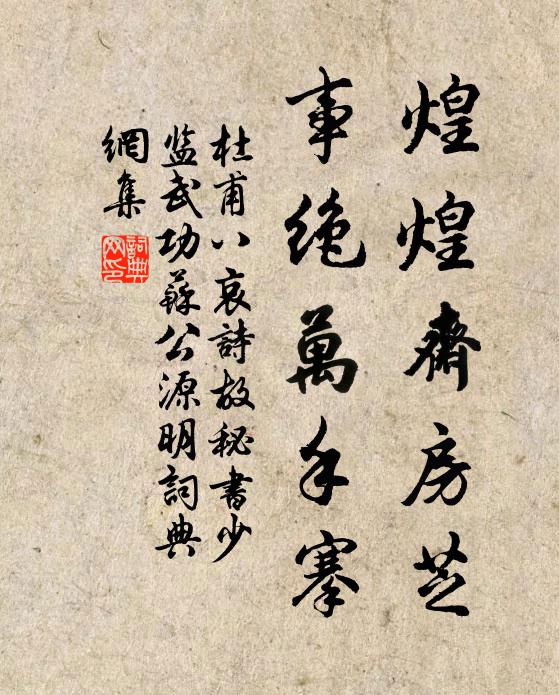 煌煌齋房芝
事絶萬手搴
杜甫八哀詩故秘書少
监武功蘇公源明詞典
網集
詞典
网印